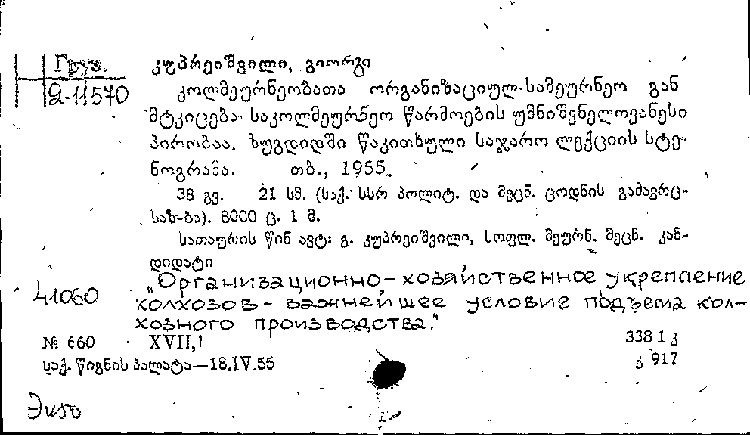 Груз. კუპრეიშვილი, გიორგი
2-11570 კოლმეურნეობათა ორგანიზაციულ-სამეურნეო გან
მტკიცება საკოლმეურნეო წარმოების უმნიშვნელოვანესი
პირობაა. ზუგდიდში წაკითხული საჯარო ლექციის სტე-
ნოგრამა. თბ., 1955.
38 გვ. 21 სმ. (საქ. სსრ პოლიტ. და მეცნ. ცოდნის გამავრც-
საზ-ბა). 8000 ც. 1 მ.
სათაურის წინ ავტ: გ. კუპრეიშვილი, სოფლ. მეურნ. მეცნ. კან-
დიდატი
„Организационно-хозяйственное укрепление
41060 колхозов - важнейшее условие подъема кол-
хозного производства."
№ 660 XVII,1 338 1 კ
საქ. წიგნის პალატა—18.IV.55 კ 917